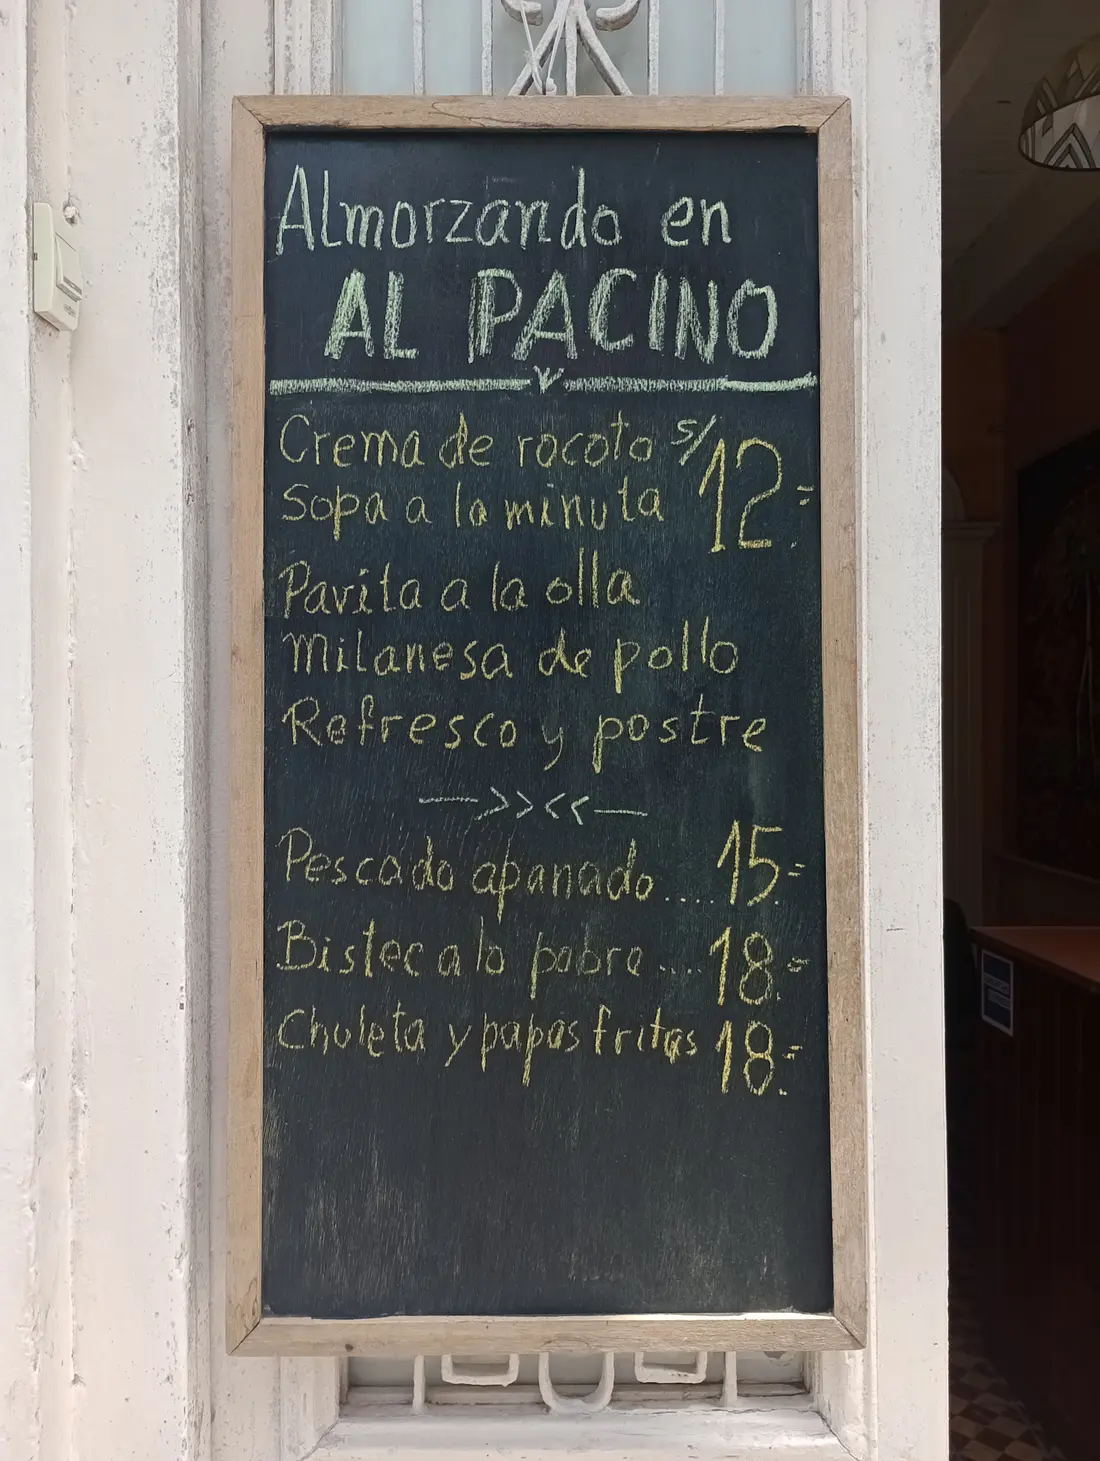 Almorzando en
AL PACINO
Crema de rocoto s/ 12.=
Sopa a la minuta
Pavita a la olla
Milanesa de pollo
Refresco y postre
Pescado apanado.... 15.=
Bistec a lo pobre.... 18.=
Chuleta y papas fritas 18.=